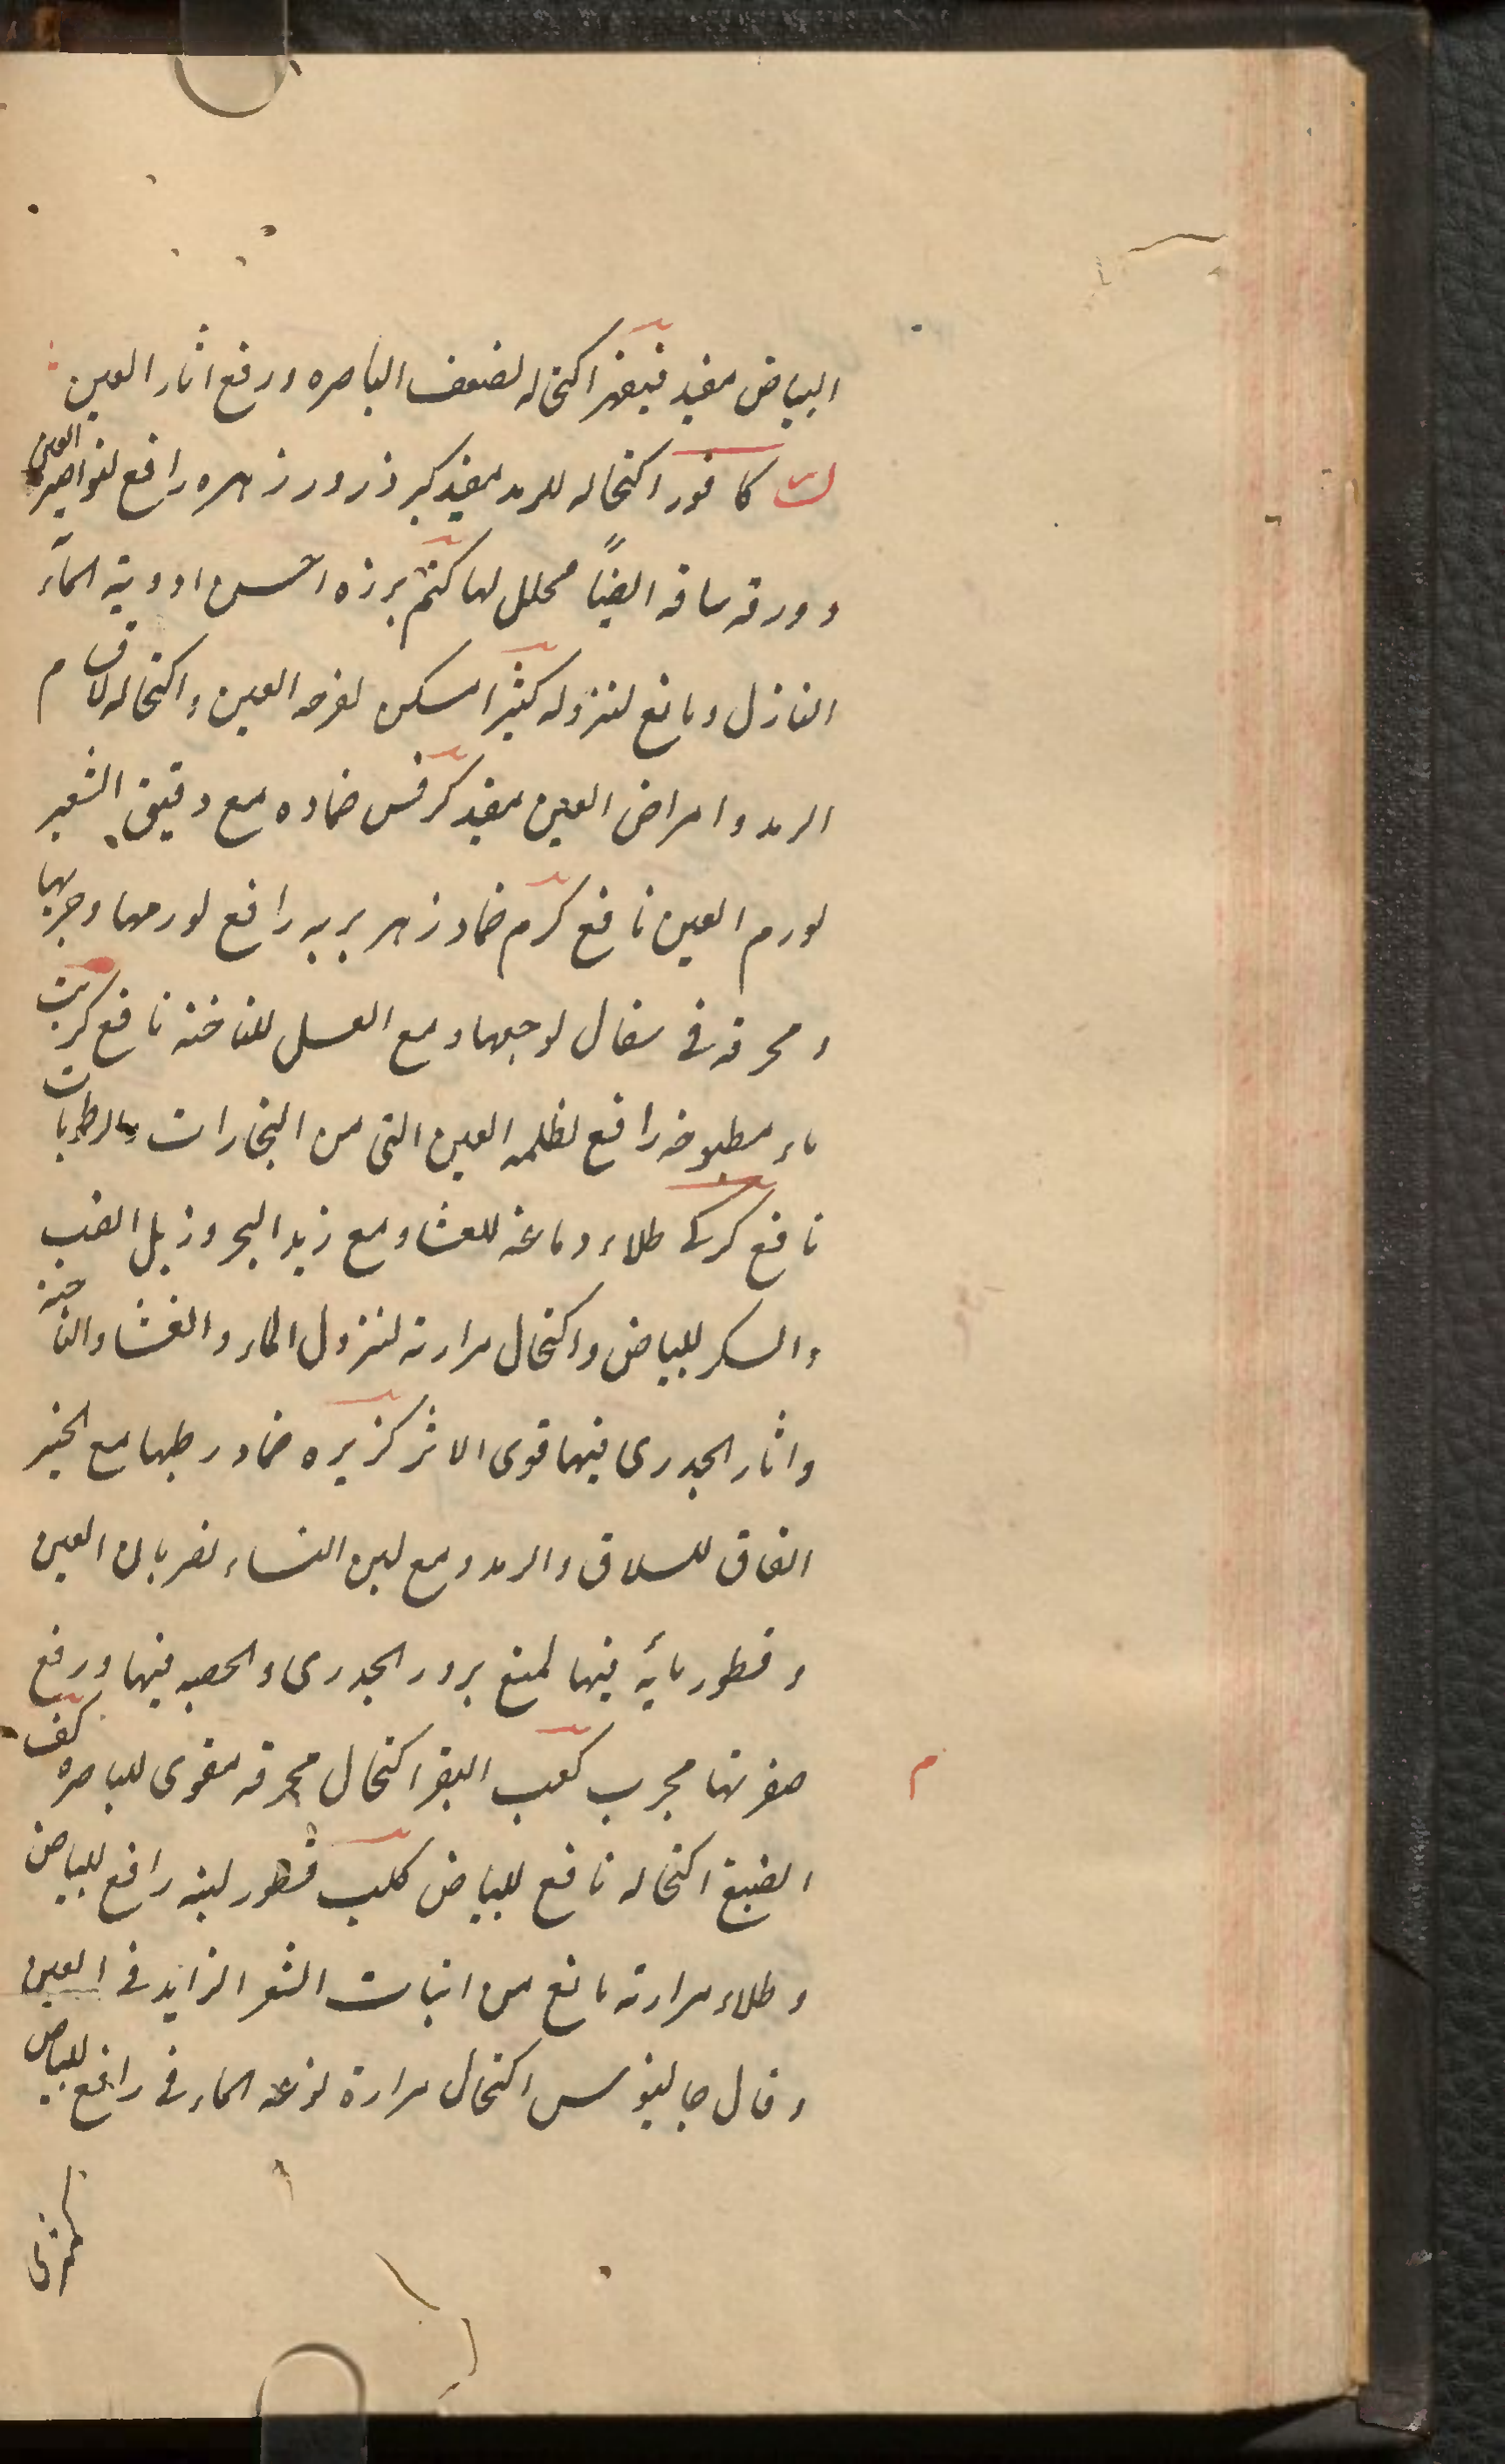 البياض مفيد فيقهر اكتحاله لضعف الباصره ورفع اثار العين
ك كافور اكتحاله للرمد مفيد كبر ذرور زهره رافع لنواصير العين
وورقه ساقه ايضاً محلل لها كتم برزه احسن ادوية المآء
النازل ومانع لنزوله كثيرا مسكن لقرحه العين واكتحاله لاقسام
الرمد وامراض العين مفيد كرفس ضماده مع دقيق الشعير
لورم العين نافع كرم ضماد زهر بريه رافع لورمها وجربها
ومحرقه فى سفال لوجعها ومع العسل للناخنه نافع كرنب
ماء مطبوخه رافع لظلمه العين التى من البخارات والرطوبات
نافع كركى طلاء دماغه للعشا ومع زبد البحر وزبل الضب
والسكر للبياض واكتحال مرارته لنزول الماء والغشا والناخنه
واثار الجدرى فيها قوى الاثر كزبره ضماد رطبها مع الخبز
الفاق للسلاق والرمد ومع لبن النساء لضربان العين
وقطور مائه فيها لمنع بروز الجدرى والحصبه فيها ورفع
صفرتها مجرب كعب البقر اكتحال محرقه مقوى للباصره كف
م
الضبع اكتحاله نافع للبياض كلب قطور لبنه رافع للبياض
وطلاء مرارته مانع من انبات الشعر الزايد فى العين
وقال جالينوس اكتحال مرارة لوزغه الماء فى رافع للبياض
كمثرى